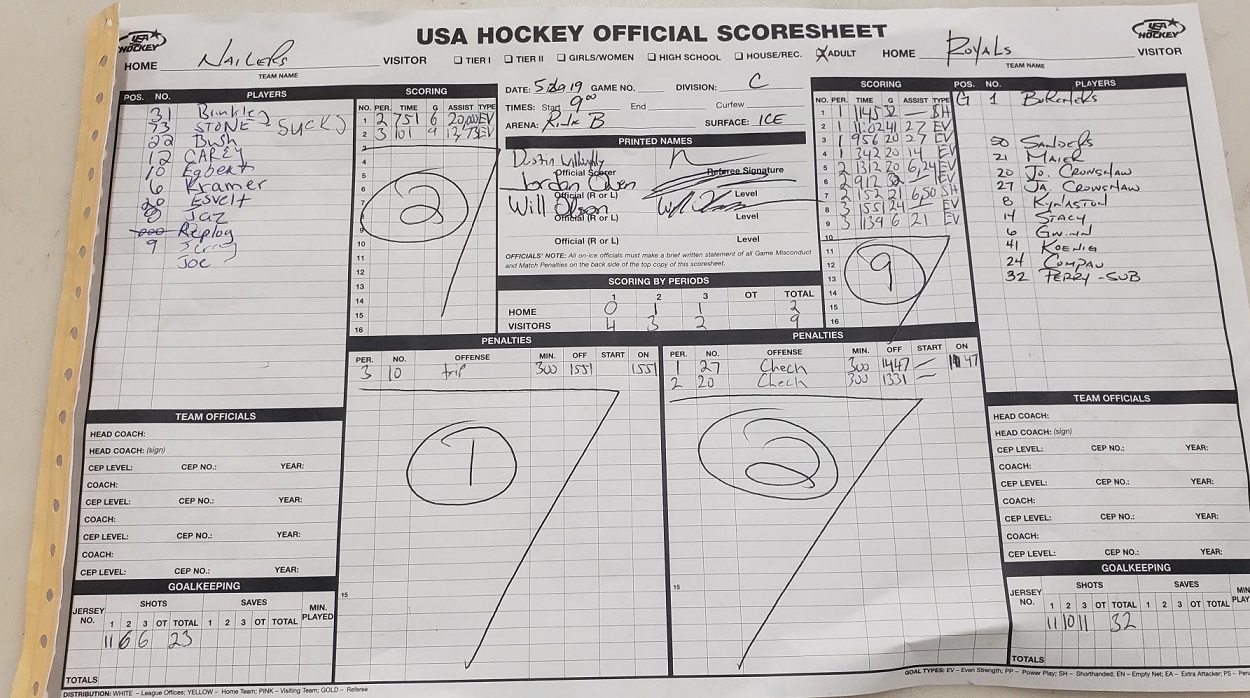 USA HOCKEY OFFICIAL SCORESHEET
USA HOCKEY
HOME NAILERS VISITOR
TEAM NAME
☐ TIER I ☐ TIER II ☐ GIRLS/WOMEN ☐ HIGH SCHOOL ☐ HOUSE/REC. ☒ ADULT
HOME ROYALS VISITOR
TEAM NAME
USA HOCKEY
POS. NO. PLAYERS
31 Binkley
73 STONE SUCKS
22 Bush
12 CAREY
10 Egbert
6 Kramer
20 ESVELT
8 Jaz
Replog
9
JOE
SCORING
NO. PER. TIME G ASSIST TYPE
1 2 751 6 20, EV
2 3 101 9 12,73 EV
3
4
5
6
7
8
9
10
11
12
13
14
15
16
2
DATE: 5 19 GAME NO. DIVISION: C
TIMES: Start 9:00 End Curfew
ARENA: Rink B SURFACE: ICE
PRINTED NAMES
Dustin Willoughby
Official Scorer Referee Signature
Jordan Owen
Official (R or L) Level
Will Olson
Official (R or L) Level
Official (R or L) Level
OFFICIALS' NOTE: All on-ice officials must make a brief written statement of all Game Misconduct
and Match Penalties on the back side of the top copy of this scoresheet.
SCORING BY PERIODS
1 2 3 OT TOTAL
HOME 0 1 1 2
VISITORS 4 3 2 9
SCORING
NO. PER. TIME G ASSIST TYPE
1 1 1145 32 — SH
2 1 1102 41 27 EV
3 1 956 20 27 EV
4 1 342 20 14 EV
5 2 1312 20 6,24 EV
6 2 912 32 — EV
7 2 152 21 6,50 SH
8 3 1551 24 — EV
9 3 1139 6 21 EV
10
11
12
13
14
15
16
9
POS. NO. PLAYERS
G 1
50 SANDERS
21 MAIER
20 JO. CRONSHAW
27 JA. CROWSHAW
8 KYNASTON
14 STACY
6 GWINN
41 KOENIG
24 COMPAU
32 PERRY - SUB
PENALTIES
PER. NO. OFFENSE MIN. OFF START ON
3 10 trip 300 1551 1551
1
15
PENALTIES
PER. NO. OFFENSE MIN. OFF START ON
1 27 Check 300 1447 — 1147
2 20 Check 300 1331 —
2
15
TEAM OFFICIALS
HEAD COACH:
HEAD COACH: (sign)
CEP LEVEL: CEP NO.: YEAR:
COACH:
CEP LEVEL: CEP NO.: YEAR:
COACH:
CEP LEVEL: CEP NO.: YEAR:
COACH:
CEP LEVEL: CEP NO.: YEAR:
GOALKEEPING
JERSEY NO. SHOTS SAVES MIN. PLAYED
1 2 3 OT TOTAL 1 2 3 OT TOTAL
11 6 6 23
TOTALS
TEAM OFFICIALS
HEAD COACH:
HEAD COACH: (sign)
CEP LEVEL: CEP NO.: YEAR:
COACH:
CEP LEVEL: CEP NO.: YEAR:
COACH:
CEP LEVEL: CEP NO.: YEAR:
COACH:
CEP LEVEL: CEP NO.: YEAR:
GOALKEEPING
JERSEY NO. SHOTS SAVES MIN PLAY
1 2 3 OT TOTAL 1 2 3 OT TOTAL
11 10 11 32
TOTALS
DISTRIBUTION: WHITE – League Offices; YELLOW – Home Team; PINK – Visiting Team; GOLD – Referee
GOAL TYPES: EV – Even Strength; PP – Power Play; SH – Shorthanded; EN – Empty Net; EA – Extra Attacker; PS – Pen